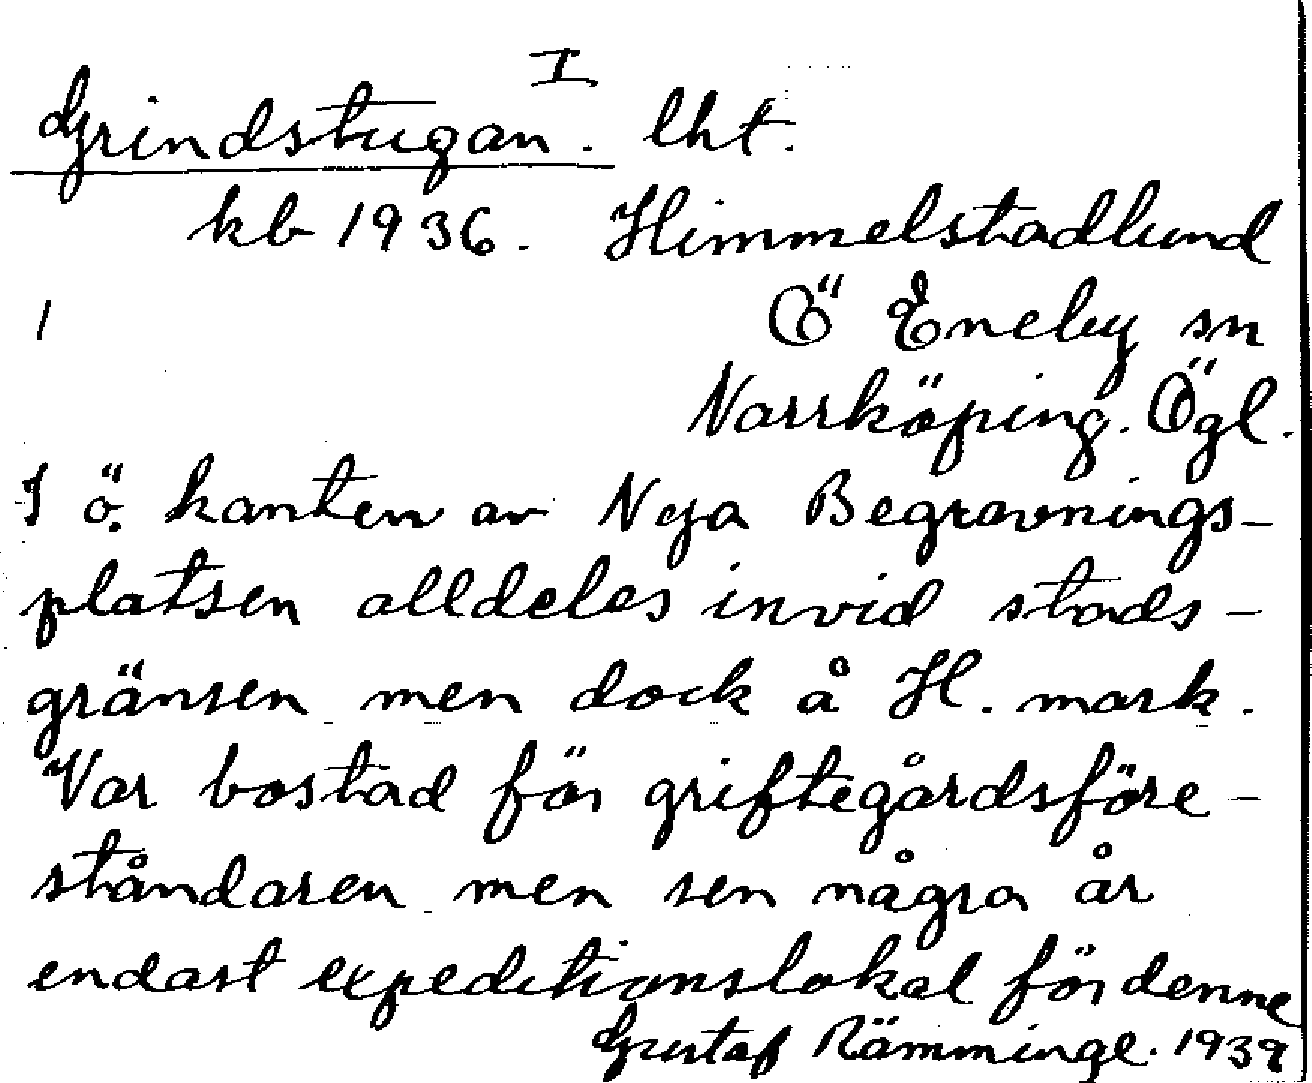 I
Grindstugan. lht.
kb 1936. Himmelstadlund
1 Ö Eneby sn
Norrköping. Ögl.
I ö. kanten av Nya Begravnings-
platsen alldeles invid stads-
gränsen men dock å H. mark.
Var bostad för griftegårdsföre-
ståndaren men sen några år
endast expeditionslokal för denne
Gustaf Rämminge. 1939